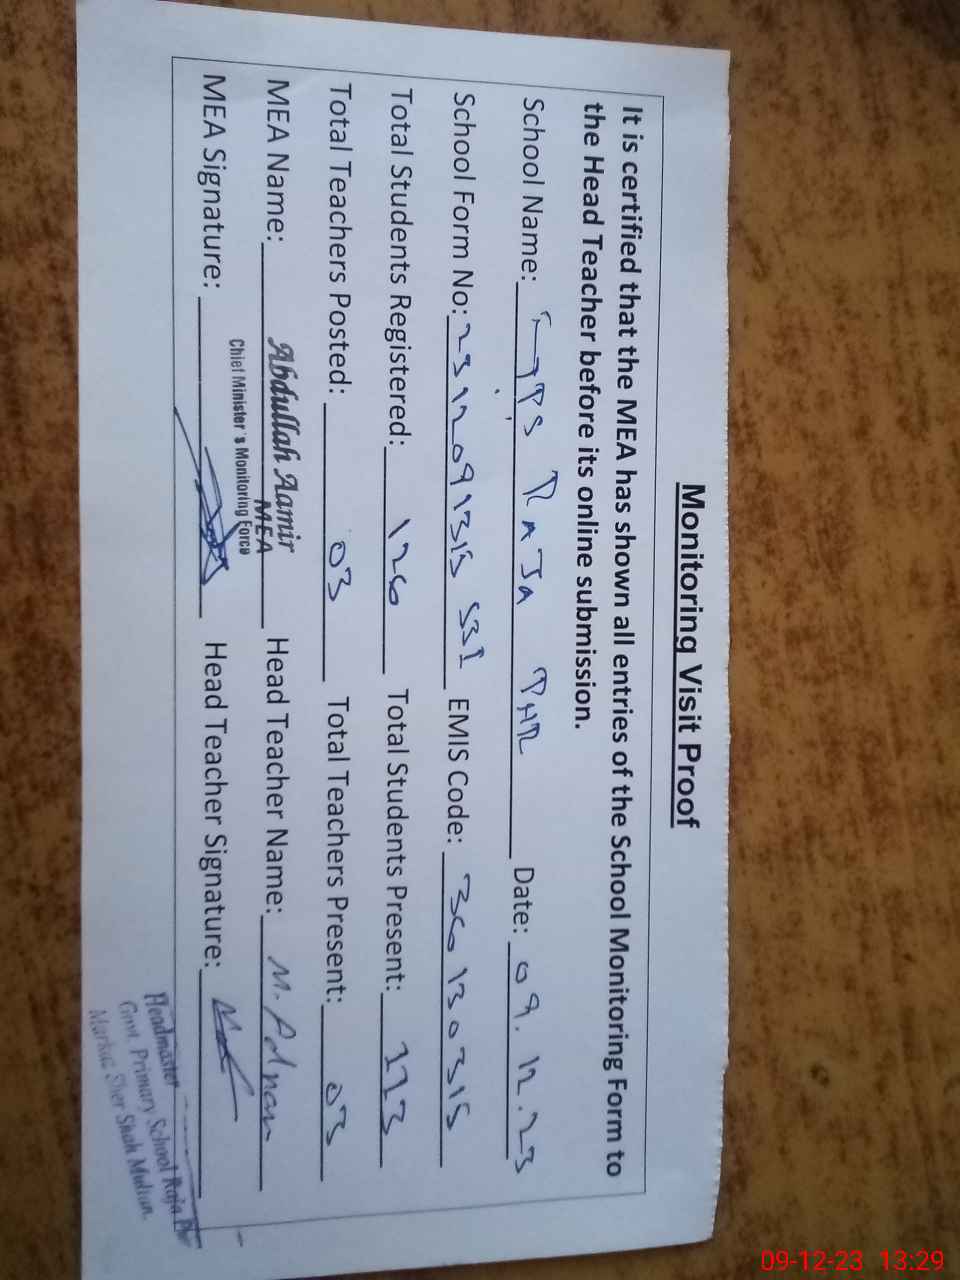 Monitoring Visit Proof
It is certified that the MEA has shown all entries of the School Monitoring Form to
the Head Teacher before its online submission.
School Name: GPS RAJA PHR Date: 09.12.23
School Form No: 2312091315 531 EMIS Code: 36130315
Total Students Registered: 126 Total Students Present: 113
Total Teachers Posted: 03 Total Teachers Present: 03
MEA Name: Abdullah Aamir Head Teacher Name: M. Adnan
MEA
Chief Minister's Monitoring Force
MEA Signature: Head Teacher Signature:
Headmaster
Govt. Primary School Raja
Markaz Sher Shah Multan.
09-12-23 13:29